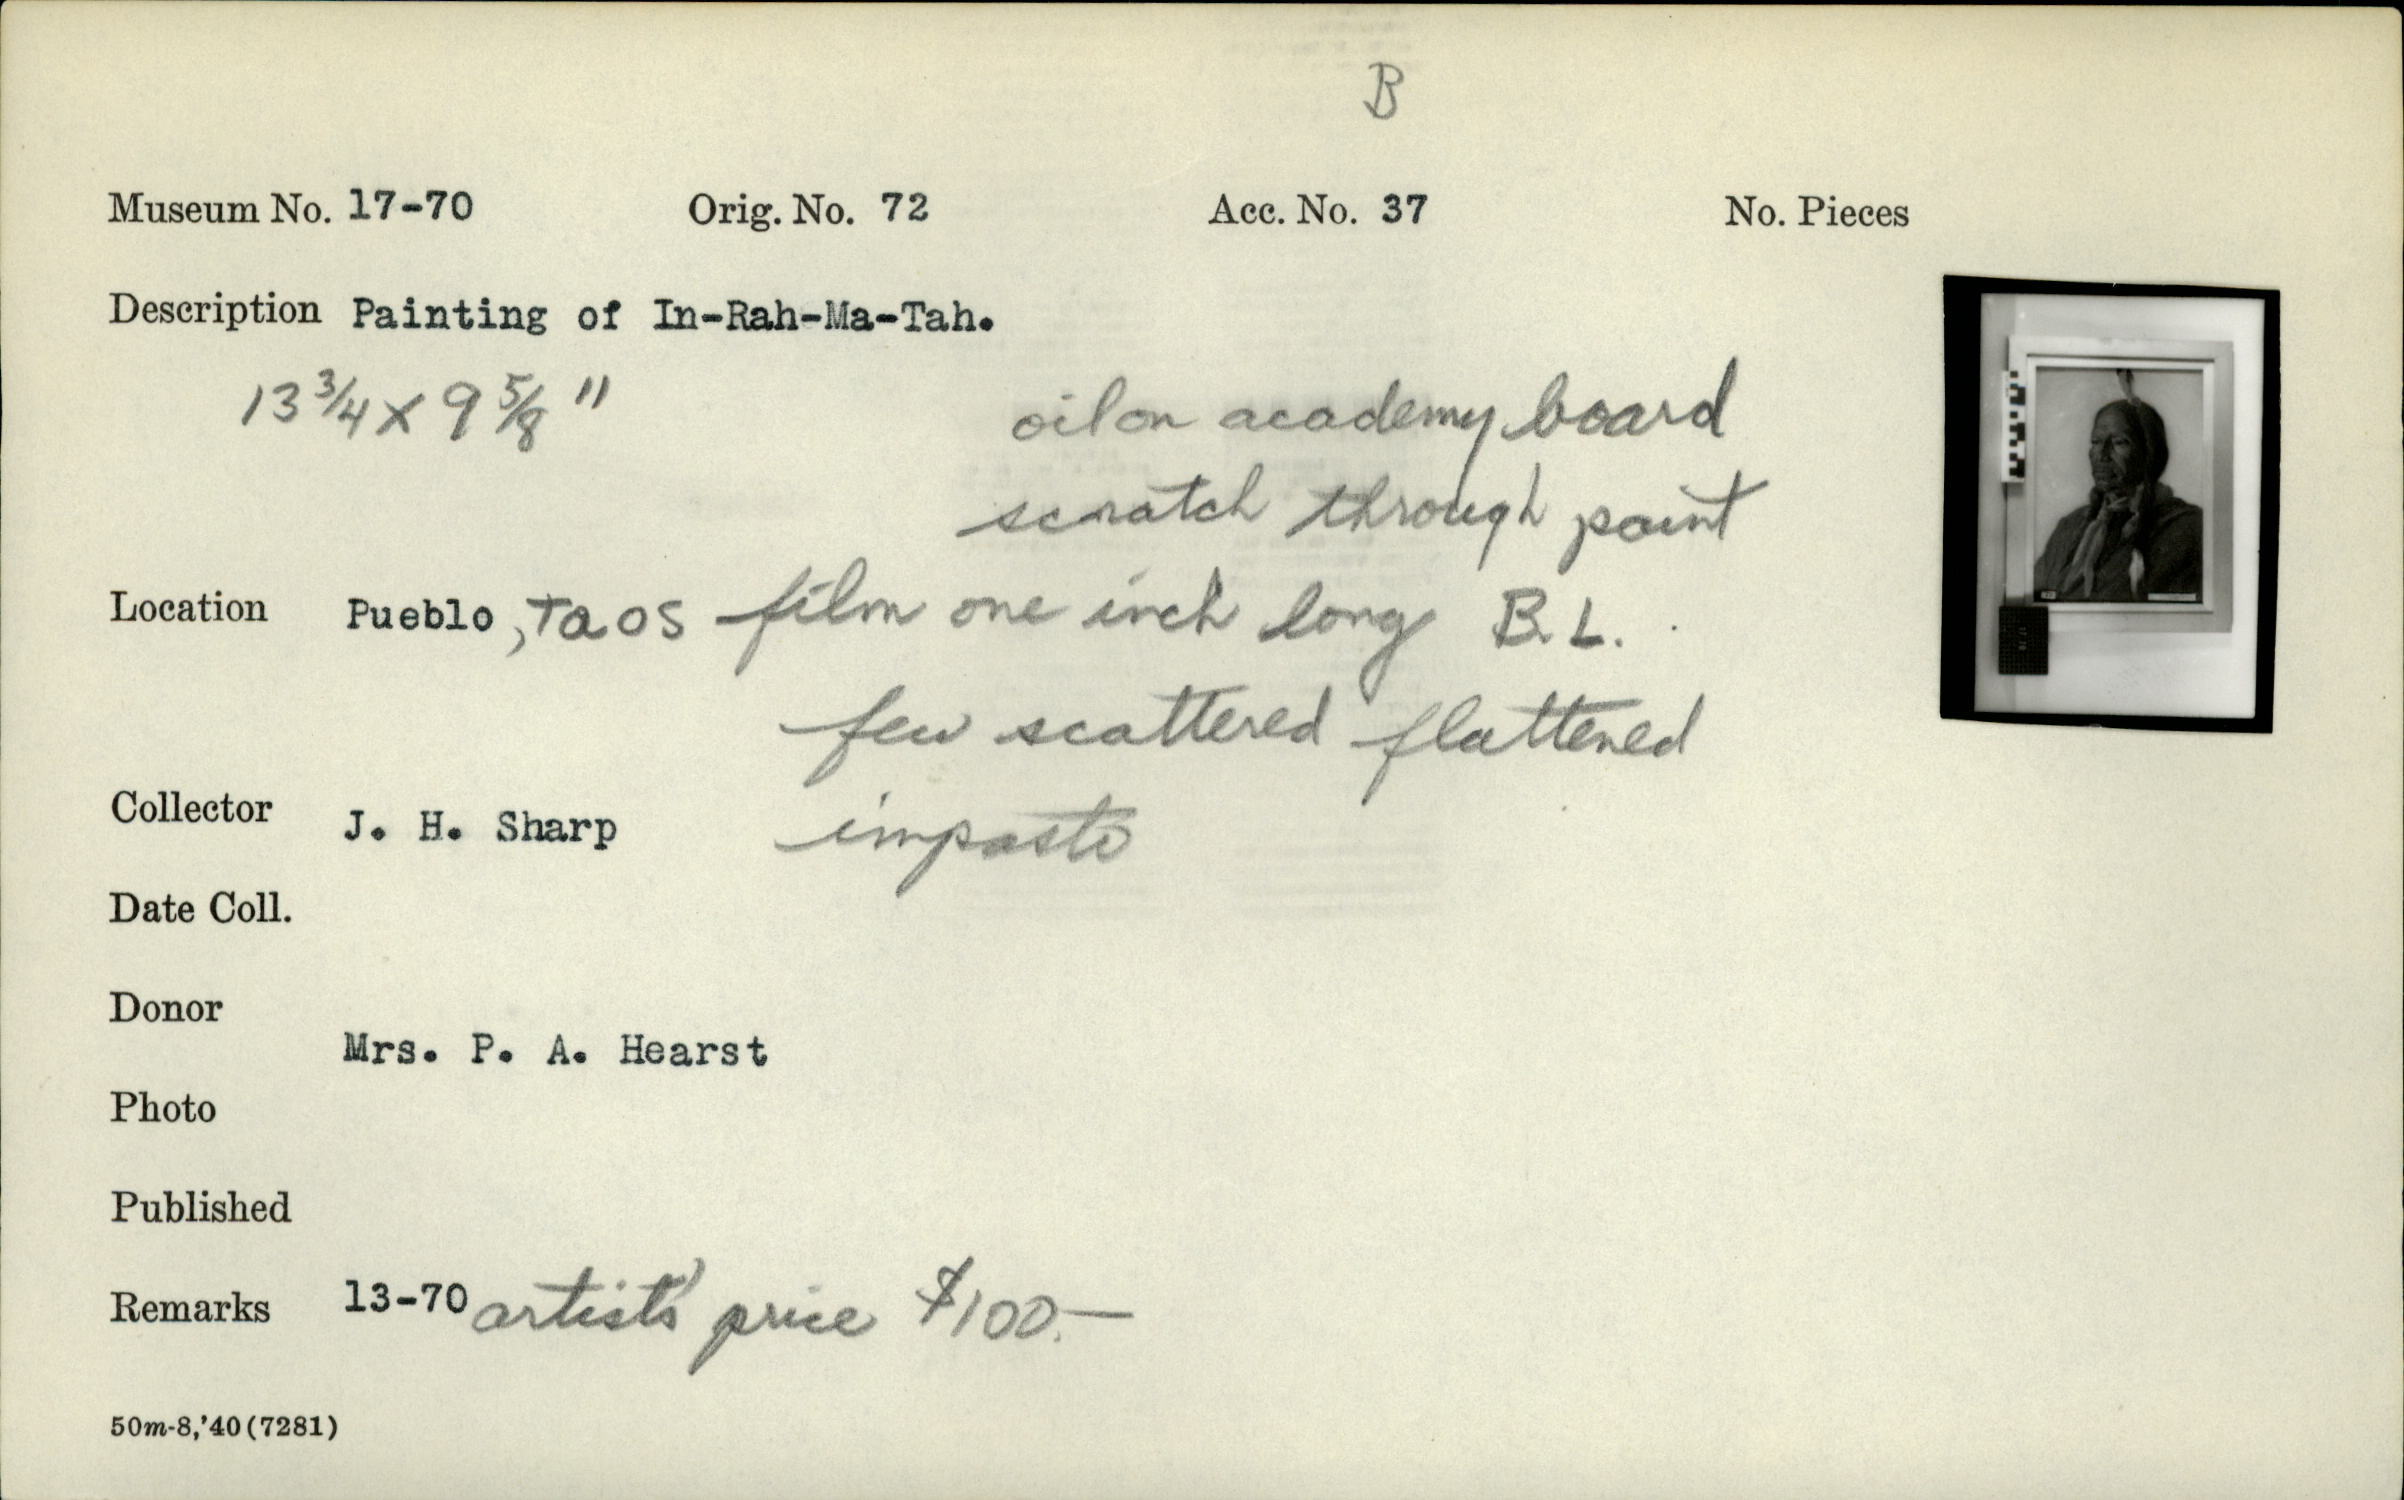 B
Museum No. 17-70 Orig. No. 72 Acc. No. 37 No. Pieces
Description Painting of In-Rah-Ma-Tah.
13 3/4 x 9 5/8 "
oil on academy board
scratch through paint
Location Pueblo, Taos film one inch long B.L.
few scattered flattened
Collector J. H. Sharp impasto
Date Coll.
Donor
Mrs. P. A. Hearst
Photo
Published
Remarks 13-70 artist's price $100.—
50m-8,'40(7281)